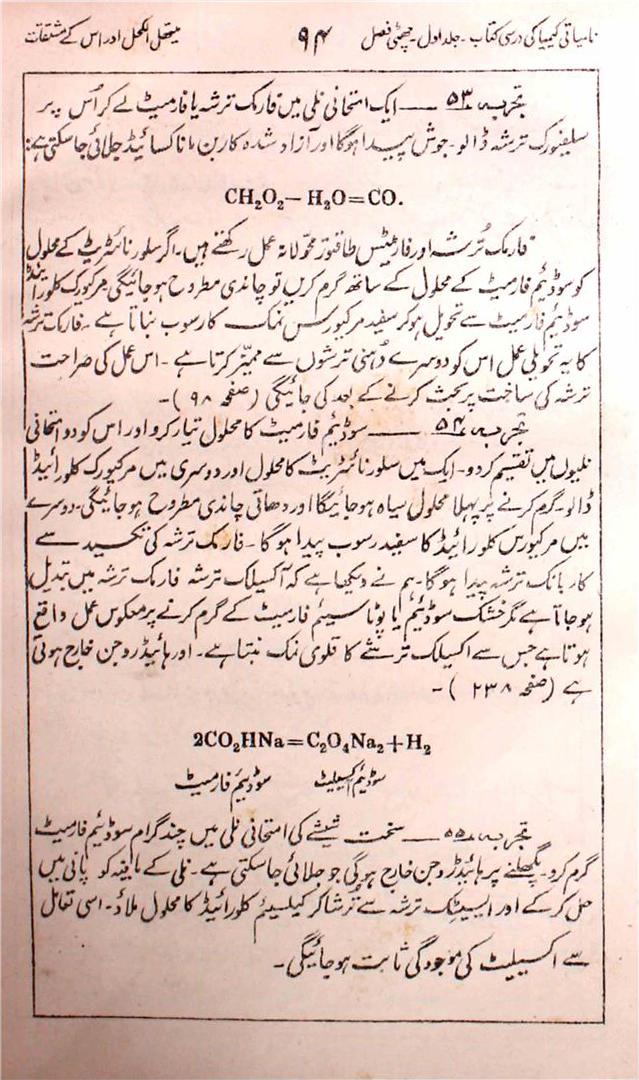 نامیاتی کیمیا کی درسی کتاب - جلد اول - چھٹی فصل ۹۴ میتھل الکحل اور اس کے مشتقات
تجربہ ۵۳ — ایک امتحانی نلی میں فارمک ترشہ یا فارمیٹ لے کر اُس پر
سلفیورک ترشہ ڈالو۔ جوش پیدا ہوگا اور آزاد شدہ کاربن مانا کسائیڈ جلائی جا سکتی ہے:
CH₂O₂ − H₂O = CO.
فارمک تُرشہ اور فارمیٹس طاقتور محوّلانہ عمل رکھتے ہیں۔ اگر سلور نائٹریٹ کے محلول
کو سوڈیئم فارمیٹ کے محلول کے ساتھ گرم کریں تو چاندی مطروح ہوجائیگی مرکیورک کلورائیڈ
سوڈیئم فارمیٹ سے تحویل ہو کر سفید مرکیورس نمک کا رسوب بناتا ہے۔ فارمک ترشہ
کا یہ تحویلی عمل اس کو دوسرے دُہنی ترشوں سے ممیّز کرتا ہے۔ اس عمل کی صراحت
ترشہ کی ساخت پر بحث کرنے کے بعد کی جائیگی (صفحہ ۹۸)۔
تجربہ ۵۴ — سوڈیئم فارمیٹ کا محلول تیار کرو اور اس کو دو امتحانی
نلیوں میں تقسیم کر دو۔ ایک میں سلور نائٹریٹ کا محلول اور دوسری میں مرکیورک کلورائیڈ
ڈالو۔ گرم کرنے پر پہلا محلول سیاہ ہو جائیگا اور دھاتی چاندی مطروح ہوجائیگی۔ دوسرے
میں مرکیورس کلورائیڈ کا سفید رسوب پیدا ہوگا۔ فارمک ترشہ کی تکسید سے
کاربانک ترشہ پیدا ہوگا۔ ہم نے دیکھا ہے کہ آکسیلک ترشہ فارمک ترشہ میں تبدیل
ہو جاتا ہے مگر خشک سوڈیئم یا پوٹاسیئم فارمیٹ کے گرم کرنے پر معکوس عمل واقع
ہوتا ہے جس سے اکسیلک ترشے کا قلوی نمک بنتا ہے۔ اور ہائیڈروجن خارج ہوتی
ہے (صفحہ ۲۳۸)۔
2CO₂HNa = C₂O₄Na₂ + H₂
سوڈیئم اکسیلیٹ سوڈیئم فارمیٹ
تجربہ ۵۵ — سخت شیشے کی امتحانی نلی میں چند گرام سوڈیئم فارمیٹ
گرم کرو۔ پگھلنے پر ہائیڈروجن خارج ہوگی جو جلائی جا سکتی ہے۔ نلی کے مافیہ کو پانی میں
حل کر کے اور ایسیٹک ترشہ سے تُرشا کر کیلسیئم کلورائیڈ کا محلول ملاؤ۔ اسی تعامل
سے اکسیلیٹ کی موجودگی ثابت ہوجائیگی۔